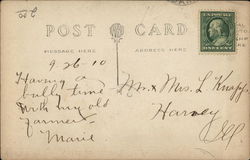 POST CARD
MESSAGE HERE
ADDRESS HERE
9-26-10
Having a
bully time
with my old
farmer
Marie
Mr & Mrs. L Knapp
Harvey
Ill